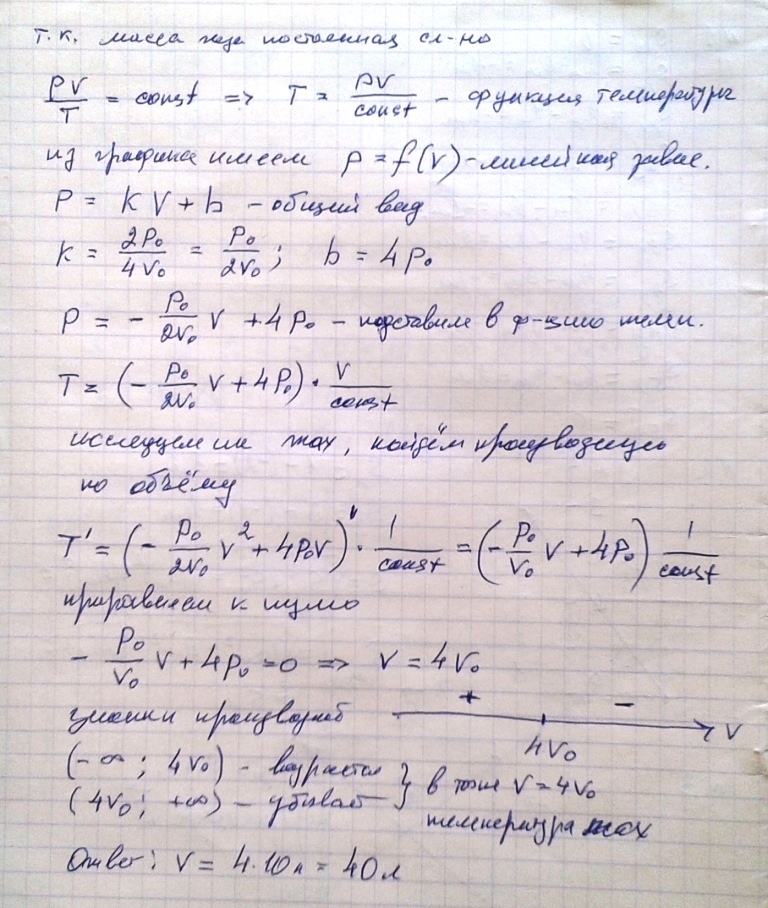 т.к. масса газа постоянная сл-но
PV/T = const => T = PV/const - функция температуры
из графика имеем p = f(V) - линейная завис.
P = kV + b - общий вид
k = 2P₀/4V₀ = P₀/2V₀; b = 4P₀
P = - P₀/2V₀ V + 4P₀ - подставим в ф-цию темп.
T = (- P₀/2V₀ V + 4P₀) · V/const
исследуем на max, найдём производную
по объёму
T' = (- P₀/2V₀ V² + 4P₀V)' · 1/const = (- P₀/V₀ V + 4P₀) 1/const
приравняем к нулю
- P₀/V₀ V + 4P₀ = 0 => V = 4V₀
+ -
значки производной V
4V₀
(-∞; 4V₀) - возрастает } в точке V = 4V₀
(4V₀; +∞) - убывает
температура max
Ответ: V = 4·10л = 40л